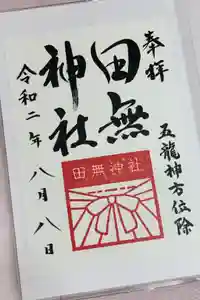 奉拝
五龍神方位除
田無
神社
田無神社
令和二年八月八日